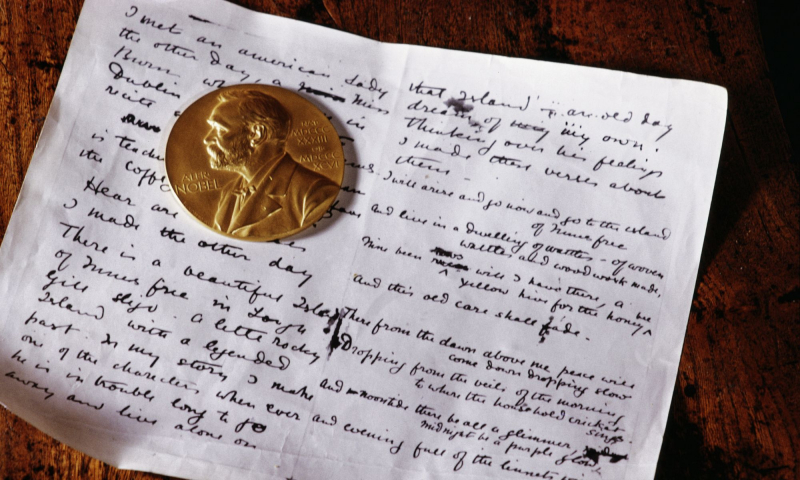 I met an american lady
the other day, a Miss
Burn
Dublin wh in
recite
is teach
the coffe
Hear are
I made the other day
There is a beautiful Island
of Innis free in Lough
Gill Sligo. A little rocky
Island with a legended
past. In my story I make
one of the characters when ever
he is in trouble long to go
away and live alone on
that Island – an old day
dream of my own.
Thinking over his feelings
I made these verses about
them –
I will arise and go now and go to the island
of Innis free
and live in a dwelling of wattles – of woven
wattles and wood work made,
Nine bean rows will I have there, a
yellow hive for the honey
And this old care shall fade.
There from the dawn above me peace will
come down dropping slow
Dropping from the veils of the morning
to where the household cricket
sings.
and noontide there be all a glimmer
midnight be a purple glow
and evening full of the linnets
ALFR.
NOBEL
NAT
MDCCC
XXXIII
OB
MDCCC
XCVI